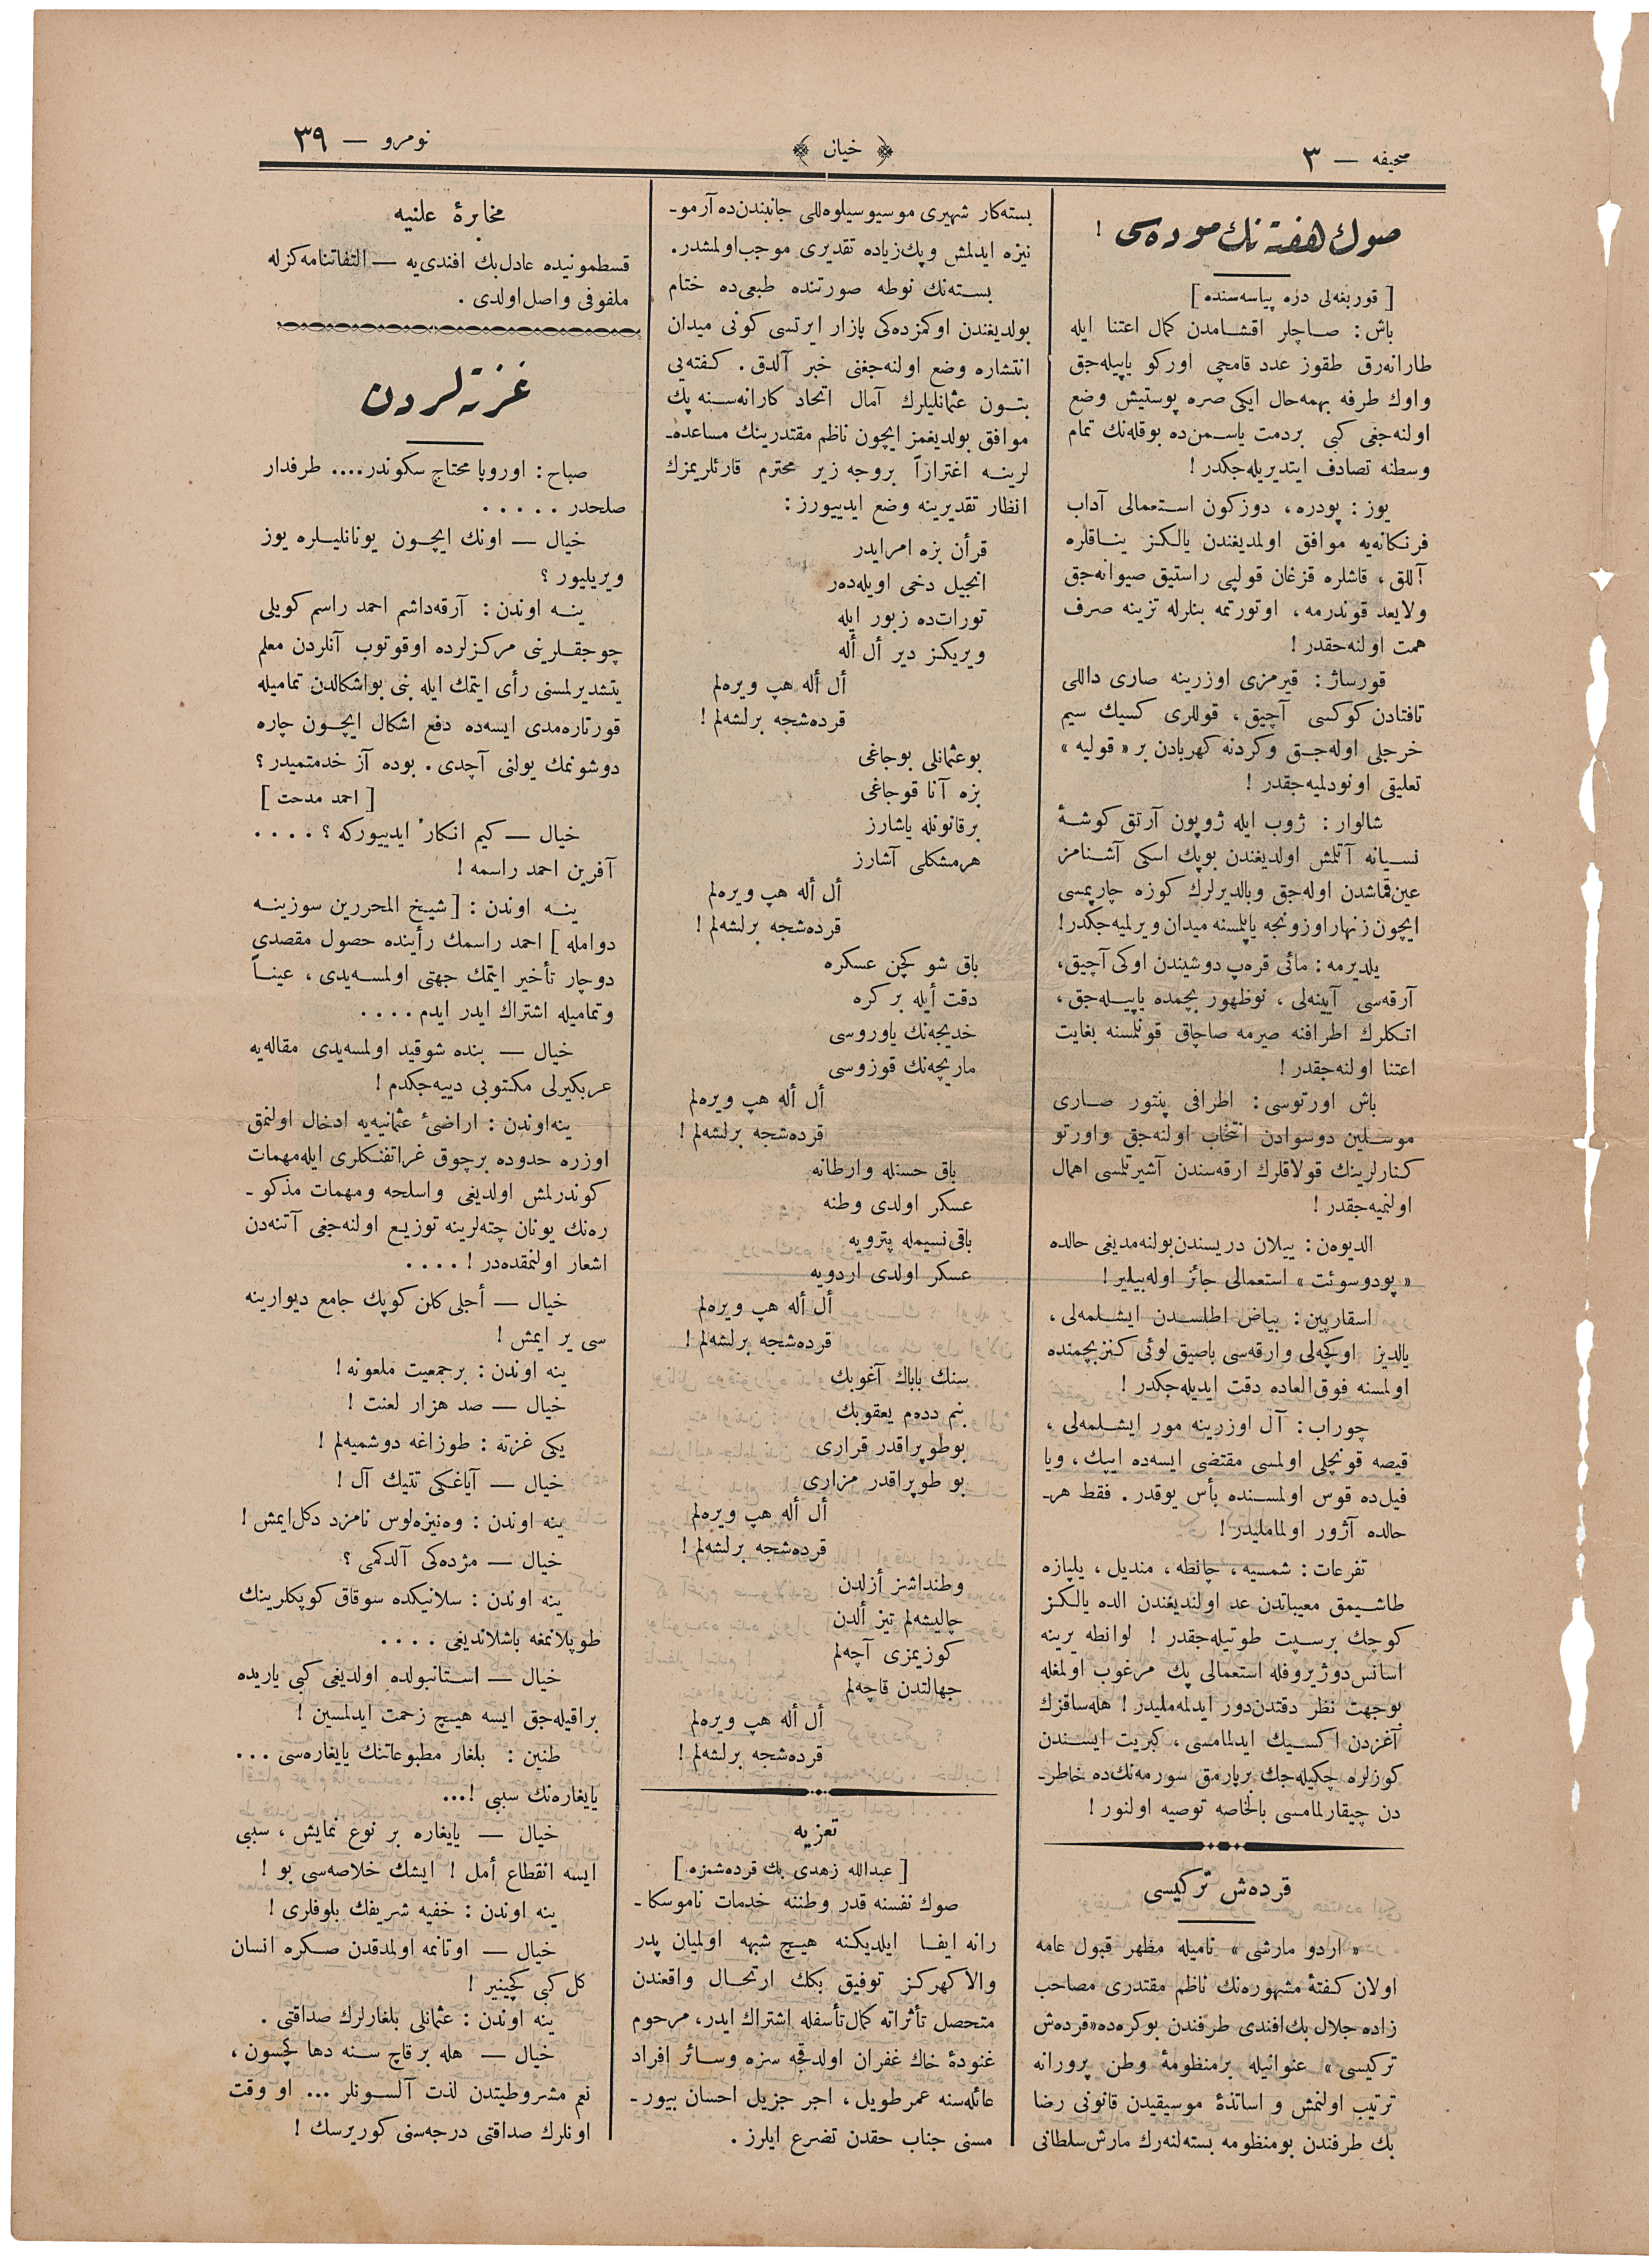 صحیفه — ٣
﴿ خیال ﴾
نومرو — ٣٩
صوك هفته نك مودەسی !
[ قوربغەلی درە پیاسەسندە ]
باش : صاچلر اقشامدن كمال اعتنا ایله
طارانەرق طقوز عدد قامچی اورکو یاپیلەجق
واوك طرفه بهمەحال ایکی صره پوستیش وضع
اولنەجغی كبی بردمت یاسمن‌دە بوقلەنك تمام
وسطنه تصادف ایتدیریلەجكدر !
یوز : پودره ، دوزكون استعمالی آداب
فرنكانەیه موافق اولمدیغندن یالكز یناقلره
آللق ، قاشلره قزغان قولپی راستیق صیوانەجق
ولایعد قوندرمه ، اوتورتمه بنلرله تزینه صرف
همت اولنەجقدر !
قورساژ : قیرمزی اوزرینه صاری داللی
تافتادن كوكسی آچیق ، قوللری كسیك سیم
خرجلی اولەجق وكردنه كهربادن بر « قولیه »
تعلیقی اونودلمیەجقدر !
شالوار : ژوب ایله ژوپون آرتق كوشۀ
نسیانه آتلمش اولدیغندن بوپك اسكی آشنامز
عین قماشدن اولەجق وبالدیرلرك كوزه چارپمسی
ایچون زنهار اوزونجه یاپلمسنه میدان ویرلمیەجكدر !
یلدیرمه : مائی قرەپ دوشیندن اوكی آچیق ،
آرقەسی آیینەلی ، نوظهور بچمده یاپیلەجق ،
اتكلرك اطرافنه صیرمه صاچاق قونلمسنه بغایت
اعتنا اولنەجقدر !
باش اورتوسی : اطرافی پنتور صاری
موسلین دوسوادن انتخاب اولنەجق واورتو
كنارلرینك قولاقلرك ارقەسندن آشیرتلمسی اهمال
اولنمیەجقدر !
الدیوەن : ییلان دریسندن بولنەمدیغی حالده
« پودوسوئت » استعمالی جائز اولەبیلیر !
اسقارپین : بیاض اطلسدن ایشلمەلی ،
یالدیز اوكچەلی وارقەسی باصیق لوئی كنز بچمنده
اولمسنه فوق‌العاده دقت ایدیلەجكدر !
چوراب : آل اوزرینه مور ایشلمەلی ،
قیصه قونچلی اولمسی مقتضی ایسەده ایپك ، ویا
فیل‌ده قوس اولمسنده بأس یوقدر . فقط هر-
حالده آژور اولماملیدر !
تفرعات : شمسیه ، چانطه ، مندیل ، یلپازه
طاشیمق معیباتدن عد اولندیغندن الده یالكز
كوچك برسپت طوتیلەجقدر ! لوانطه یرینه
اسانس‌دوژیروفله استعمالی پك مرغوب اولمغله
بوجهت نظر دقتدن‌دور ایدلمەملیدر ! هله‌ساقزك
آغزدن اكسیك ایدلمامسی ، كبریت ایسندن
كوزلره چكیلەجك برپارمق سورمەنك‌ده خاطر-
دن چیقارلمامسی بالخاصه توصیه اولنور !
قردەش تركیسی
« اردو مارشی » نامیله مظهر قبول عامه
اولان كفتۀ مشهورەنك ناظم مقتدری مصاحب
زاده جلال بك‌افندی طرفندن بوكره‌ده « قردەش
تركیسی » عنوانیله برمنظومۀ وطن پرورانه
ترتیب اولنمش و اساتذۀ موسیقیدن قانونی رضا
بك طرفندن بومنظومه بستەلنەرك مارش‌سلطانی
بستەكار شهیری موسیوسیلوەللی جانبندن‌ده آرمو-
نیزه ایدلمش وپك‌زیاده تقدیری موجب‌اولمشدر .
بستەنك نوطه صورتنده طبعی‌ده ختام
بولدیغندن اوكمزده‌كی پازار ایرتسی كونی میدان
انتشاره وضع اولنەجغنی خبر آلدق . كفتەیی
بتون عثمانلیلرك آمال اتحاد كارانەسنه پك
موافق بولدیغمز ایچون ناظم مقتدرینك مساعده-
لرینه اغتراراً بروجه زیر محترم قارئلریمزك
انظار تقدیرینه وضع ایدییورز :
قرأن بزه امرایدر
انجیل دخی اویلەدەر
تورات‌ده زبور ایله
ویریكز دیر أل أله
أل أله هپ ویرەلم
قردەشجه برلشەلم !
بوعثمانلی بوجاغی
بزه آنا قوجاغی
برقانونله یاشارز
هرمشكلی آشارز
أل أله هپ ویرەلم
قردەشجه برلشەلم !
باق شو كچن عسكره
دقت أیله بر كره
خدیجەنك یاوروسی
ماریچەنك قوزوسی
أل أله هپ ویرەلم
قردەشجه برلشەلم !
باق حسنله وارطانه
عسكر اولدی وطنه
باقی‌نسیمله پترویه
عسكر اولدی اردویه
أل أله هپ ویرەلم
قردەشجه برلشەلم !
سنك باباك آغوبك
بنم ددەم یعقوبك
بوطوپراقدر قراری
بو طوپراقدر مزاری
أل أله هپ ویرەلم
قردەشجه برلشەلم !
وطنداشز أزلدن
چالیشەلم تیز ألدن
كوزیمزی آچەلم
جهالتدن قاچەلم
أل أله هپ ویرەلم
قردەشجه برلشەلم !
تعزیه
[ عبدالله زهدی بك قردەشمزه ]
صوك نفسنه قدر وطننه خدمات ناموسكا-
رانه ایفا ایلدیكنه هیچ شبهه اولمیان پدر
والاكهركز توفیق بكك ارتحال واقعندن
متحصل تأثراته كمال‌تأسفله اشتراك ایدر ، مرحوم
غنودۀ خاك غفران اولدقجه سزه وسائر افراد
عائلەسنه عمرطویل ، اجر جزیل احسان بیور-
مسنی جناب حقدن تضرع ایلرز .
مخابرۀ علنیه
قسطمونیده عادل‌بك افندی‌یه — التفاتنامەكزله
ملفوفی واصل‌اولدی .
غزتەلردن
صباح : اوروپا محتاج سكوندر .... طرفدار
صلحدر . . . . .
خیال — اونك ایچون یونانلیلره یوز
ویریلیور ؟
ینه اوندن : آرقەداشم احمد راسم كویلی
چوجقلرینی مركزلرده اوقوتوب آنلردن معلم
یتشدیرلمسنی رأی ایتمك ایله بنی بواشكالدن تمامیله
قورتارەمدی ایسەده دفع اشكال ایچون چاره
دوشونمك یولنی آچدی . بوده آز خدمتمیدر ؟
[ احمد مدحت ]
خیال — كیم انكار ایدییوركه ؟ . . . .
آفرین احمد راسمه !
ینه اوندن : [ شیخ المحررین سوزینه
دوامله ] احمد راسمك رأینده حصول مقصدی
دوچار تأخیر ایتمك جهتی اولمسەیدی ، عیناً
وتمامیله اشتراك ایدر ایدم . . . .
خیال — بنده شوقید اولمسەیدی مقالەیه
عربكیرلی مكتوبی دییەجكدم !
ینه‌اوندن : اراضئ عثمانیەیه ادخال اولنمق
اوزره حدوده برچوق غراتفنكلری ایله‌مهمات
كوندرلمش اولدیغی واسلحه ومهمات مذكو-
رەنك یونان چتەلرینه توزیع اولنەجغی آتنەدن
اشعار اولنمقدەدر ! . . . .
خیال — أجلی كلن كوپك جامع دیوارینه
سی یر ایمش !
ینه اوندن : برجمعیت ملعونه !
خیال — صد هزار لعنت !
یكی غزته : طوزاغه دوشمیەلم !
خیال — آیاغكی تتیك آل !
ینه اوندن : وەنیزەلوس نامزد دكل‌ایمش !
خیال — مژدەكی آلدكمی ؟
ینه اوندن : سلانیكده سوقاق كوپكلرینك
طوپلانمغه باشلاندیغی . . . .
خیال — استانبولده اولدیغی كبی یاریده
براقیلەجق ایسه هیچ زحمت ایدلمسین !
طنین : بلغار مطبوعاتنك یایغارەسی ...
یایغارەنك سببی !...
خیال — یایغاره بر نوع نمایش ، سببی
ایسه انقطاع أمل ! ایشك خلاصەسی بو !
ینه اوندن : خفیه شریفك بلوفلری !
خیال — اوتانمه اولمدقدن صكره انسان
كل كبی كچینیر !
ینه اوندن : عثمانلی بلغارلرك صداقتی .
خیال — هله برقاچ سنه دها كچسون ،
نعم مشروطیتدن لذت آلسونلر ... او وقت
اونلرك صداقتی درجەسنی كوریرسك !